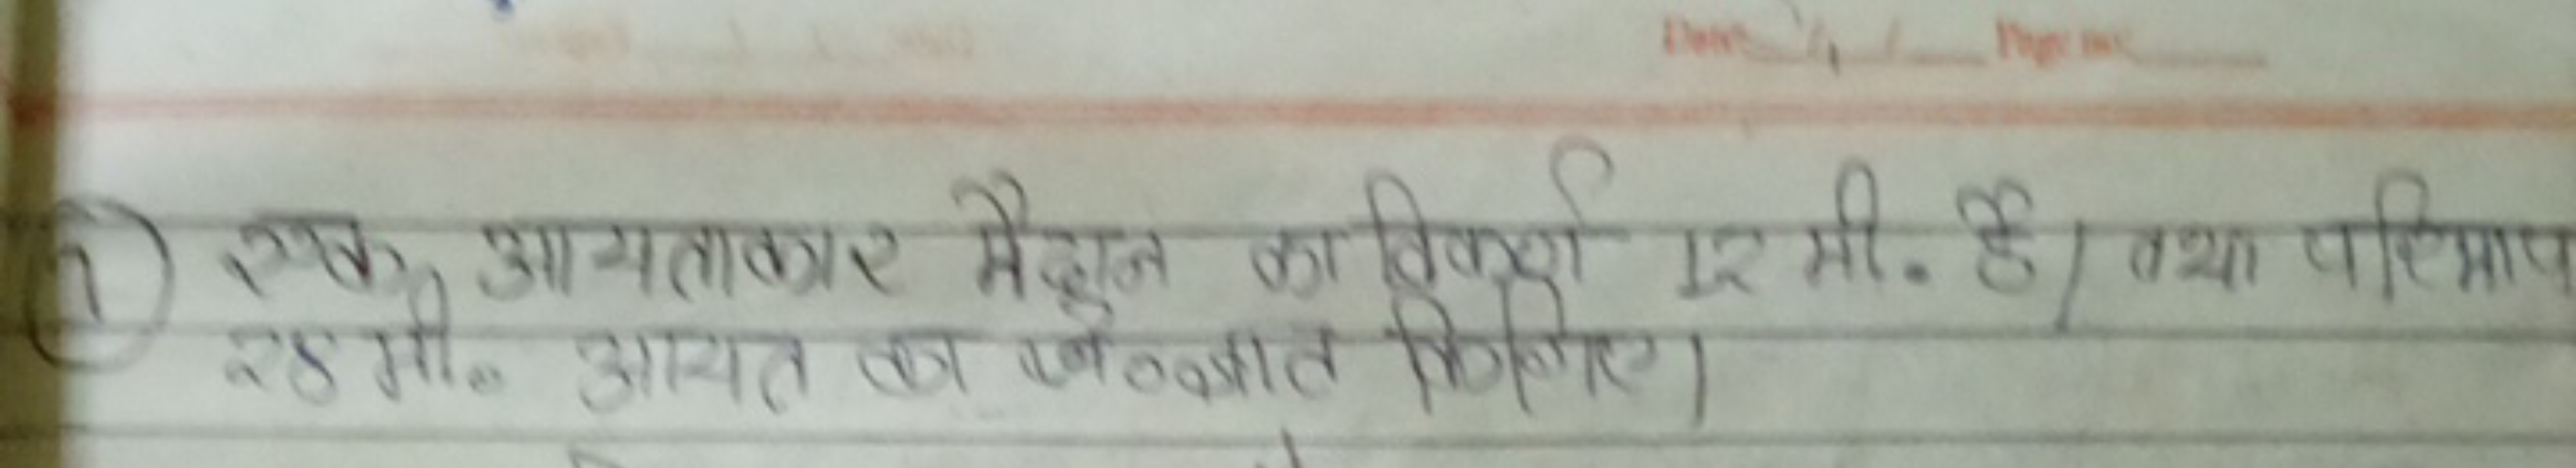 Date / / Page no.
1 एक आयताकार मैदान का विकर्ण 12 मी. है। तथा परिमाप
28 मी. आयत का ज्ञात किजिए।